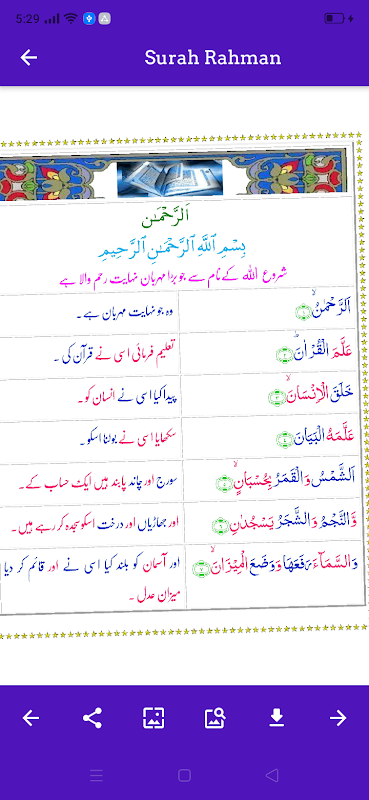 5:29
Surah Rahman
اَلرَّحْمٰن
بِسْمِ ٱللَّهِ ٱلرَّحْمَٰنِ ٱلرَّحِيمِ
شروع اللہ کے نام سے جو بڑا مہربان نہایت رحم والا ہے
اَلرَّحْمٰنُۙ ﴿۱﴾ وہ جو نہایت مہربان ہے۔
عَلَّمَ الْقُرْاٰنَؕ ﴿۲﴾ تعلیم فرمائی اسی نے قرآن کی۔
خَلَقَ الْاِنْسَانَۙ ﴿۳﴾ پیدا کیا اسی نے انسان کو۔
عَلَّمَهُ الْبَيَانَ ﴿۴﴾ سکھایا اسی نے بولنا اسکو۔
اَلشَّمْسُ وَالْقَمَرُ بِحُسْبَانٍۙ ﴿۵﴾ سورج اور چاند پابند ہیں ایک حساب کے۔
وَّالنَّجْمُ وَالشَّجَرُ يَسْجُدٰنِ ﴿۶﴾ اور جھاڑیاں اور درخت اسکو سجدہ کر رہے ہیں۔
وَالسَّمَآءَ رَفَعَهَا وَوَضَعَ الْمِيْزَانَۙ ﴿۷﴾ اور آسمان کو بلند کیا اسی نے اور قائم کر دیا
میزان عدل۔